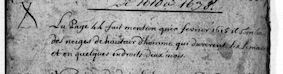 La Page 44 fait mention que en fevrier 1615 il tomba
des neiges de hauteur d'homme, qui durerent six semaines
et en quelques endroits deux mois.